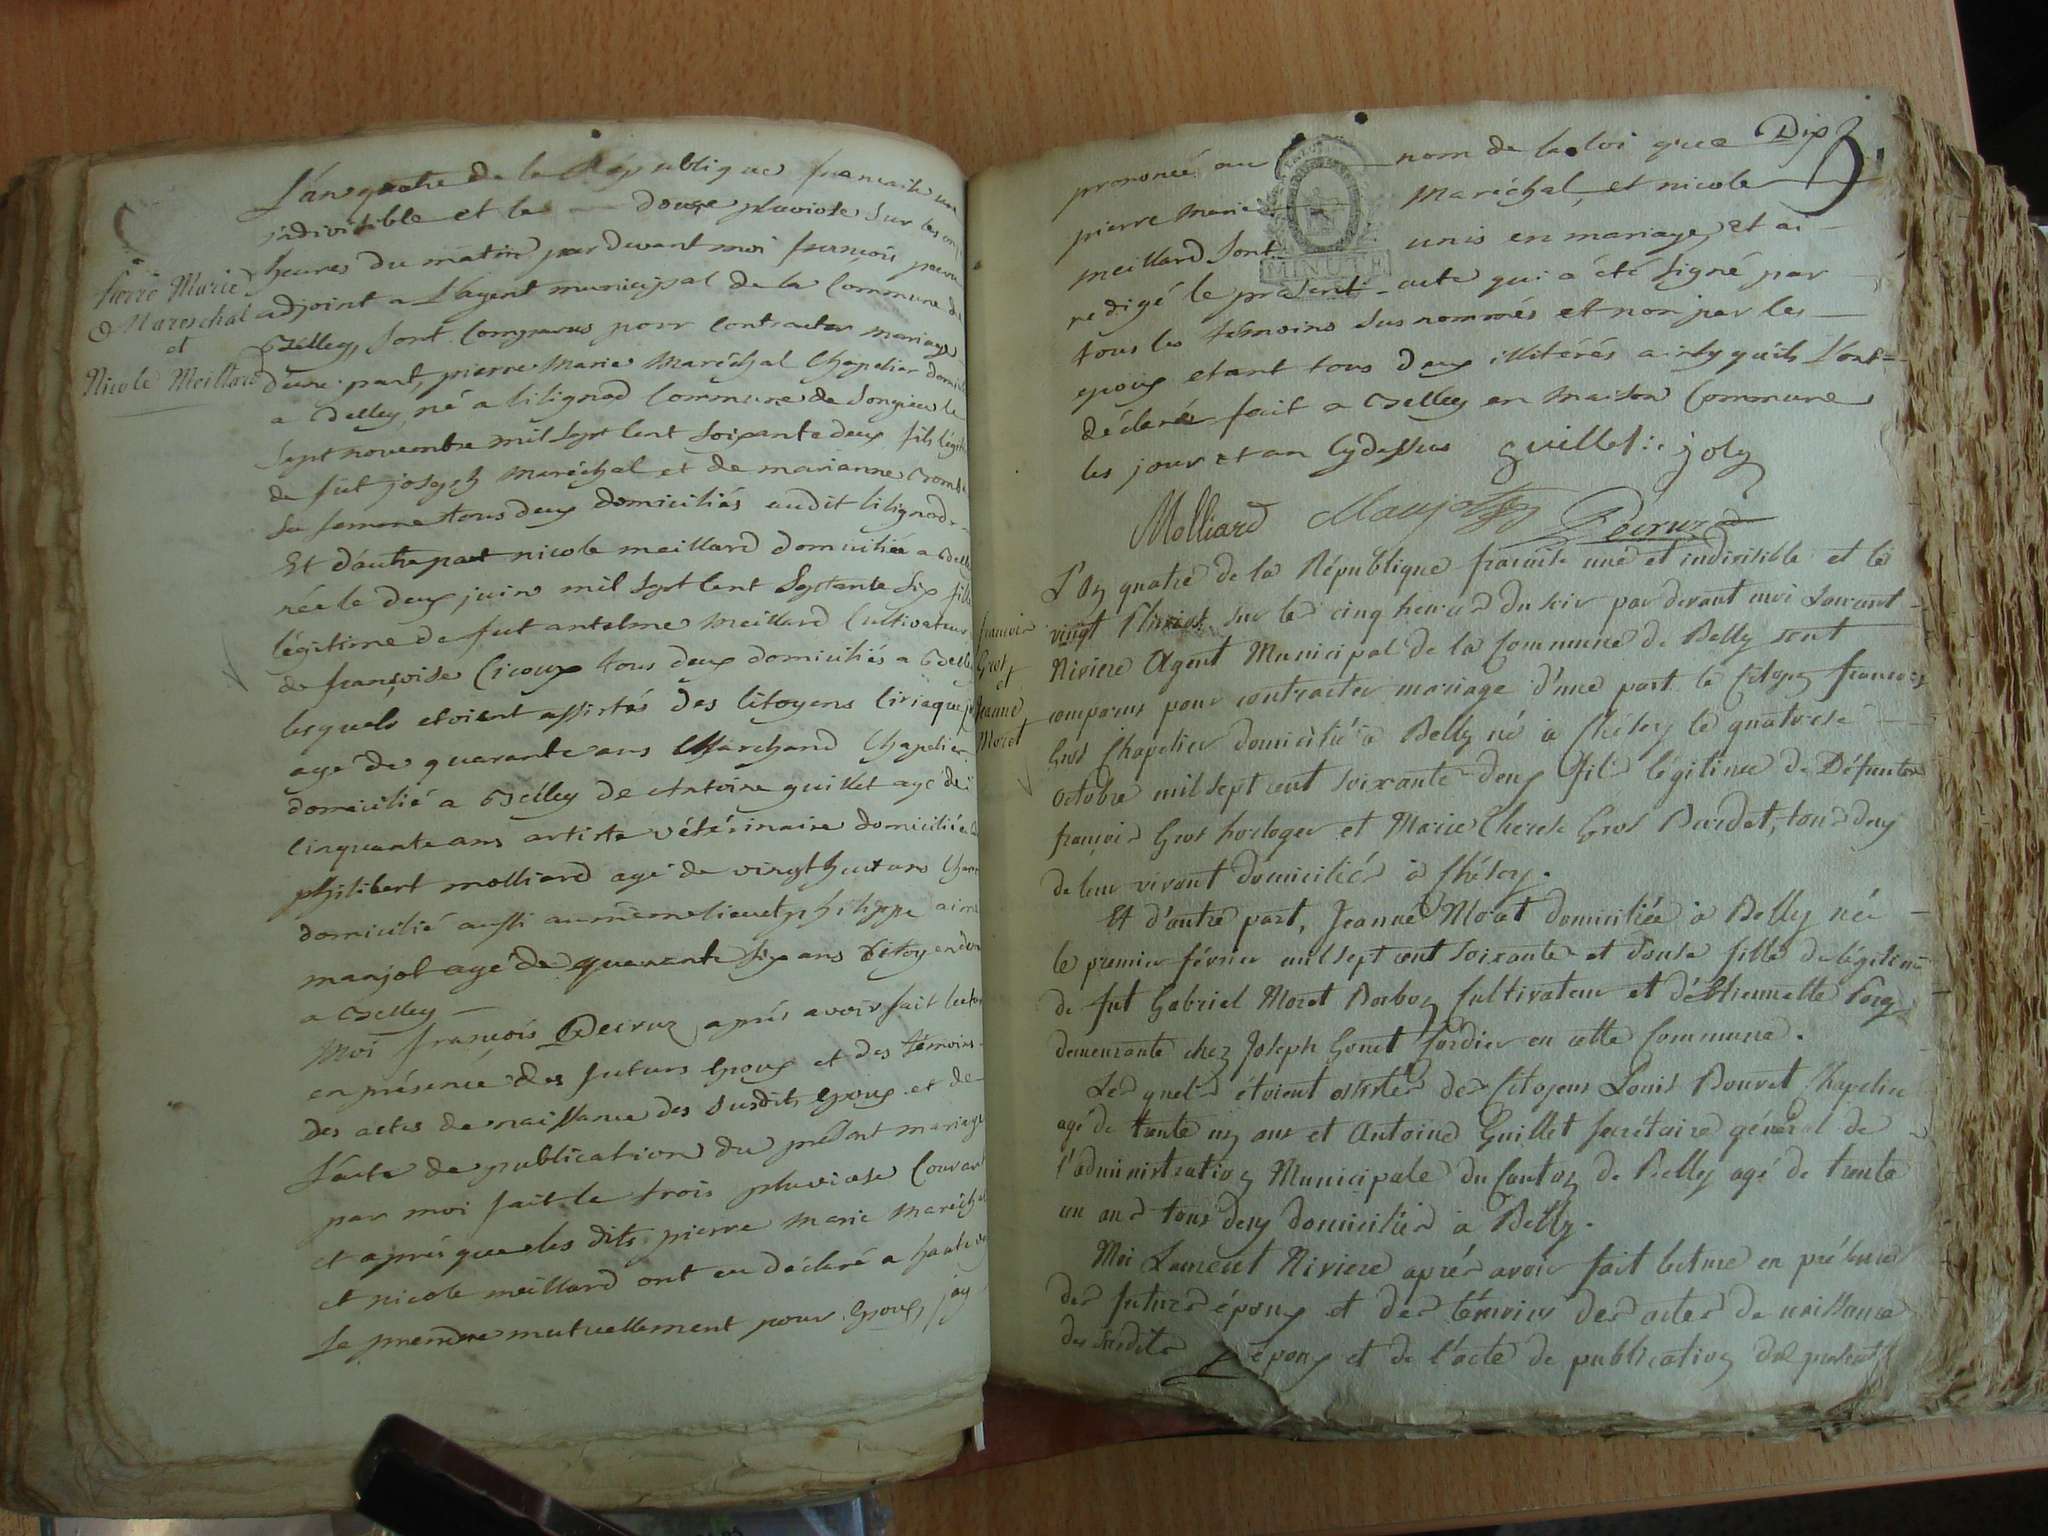 L'an quatre de la République francaise une
indivisible et le douze pluviose sur les onze
heures du matin par devant moi françois
adjoint a L'agent municipal de la Commune de
Belley, sont Comparus pour Contracter mariage
d'une part, pierre marie maréchal Chapelier domicilié
a Belley, né a lilignod Commune de Songieu le
sept novembre mil sept Cent soixante deux fils légit
de fût joseph maréchal et de marianne
sa femme tous deux domiciliés audit lilignod
Et d'autre part nicole meillard domiciliée a Belley
née le deux juin mil sept Cent septante six fille
légitime de fut antelme meillard Cultivateur
de françoise Cicoux tous deux domiciliés a Belley
lesquels etoient assistés des Citoyens Ciriaque
agé de quarante ans Marchand Chapelier
domicilié a Belley de Antoine guillet agé de
Cinquante ans artiste vétérinaire domicilié
philibert molliard agé de vingt huit ans
domicilié aussi au même lieu et philippe aimé
manjot agé de quarante six ans Citoyen
a Belley
Moi françois Decruz, aprés avoir fait lecture
en présence des futurs Epoux et des témoins
des actes de naissance des susdits epoux et de
l'acte de publication du présent mariage
par moi fait le trois pluviose Courant
et aprés que les dits pierre marie maréchal
et nicole meillard ont eu déclaré a haute voix
se prendre mutuellement pour Epoux, jay
Pierre Marie
Mareschal
et
Nicole Meillard
prononcé au nom de la loi que Dix
pierre marie Maréchal, et nicole
meillard sont unis en mariage, et ai
MINUTE
redigé le présent acte qui a été signé par
tous les témoins sus nommés et non par les
epoux etant tous deux illitérés ainsy qu'ils l'ont
déclaré fait a Belley en maison Commune
les jour et an cydessus guillet: joly
Molliard Manjot Decruz
L'an quatre de la République francaise une et indivisible et le
vingt Pluviose sur les cinq heures du soir par devant moi Laurent
Riviere Agent Municipal de la Commune de Belly sont
comparus pour contracter mariage d'une part le Citoyen francois
Gros Chapelier domicilié à Belly né à Chésery le quatorse
octobre mil sept cent soixante deux fils légitime de Défunts
françois Gros horloger et Marie Therese Gros Burdet, tous deux
de leur vivant domiciliés à Chésery.
Et d'autre part, Jeanne Moret domiciliée à Belly née
le premier février mil sept cent soixante et douse fille légitime
de fut Gabriel Moret Barbon Cultivateur et d'Etiennette
demeurante chez Joseph Gonet Cordier en cette Commune.
Les quels étoient assistés des Citoyens Louis Bouvet Chapelier
agé de trente un ans et Antoine Guillet secrétaire général de
l'administration Municipale du Canton de Belly agé de trente
un ans tous deux domiciliés à Belly.
Moi Laurent Riviere aprés avoir fait lecture en présence
des futurs époux et des témoins des actes de naissance
des susdits époux et de l'acte de publication du présent
francois
Gros
et
Jeanne
Moret